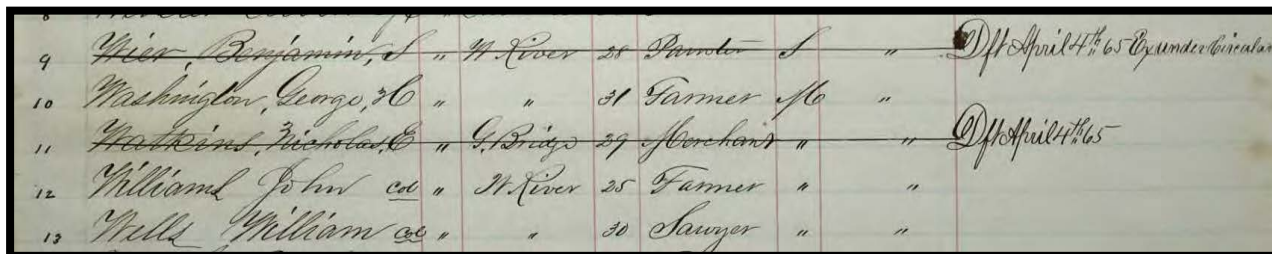 9 Wier, Benjamin, S " W River 28 Painter S " Dft April 4th 65 Ex under Circular
10 Washington, George, H " " 31 Farmer M "
11 Watkins, Nicholas, E " G. Bridge 29 Merchant " " Dft April 4th 65
12 Williams John col " W River 25 Farmer " "
13 Wells William col " " 30 Sawyer " "